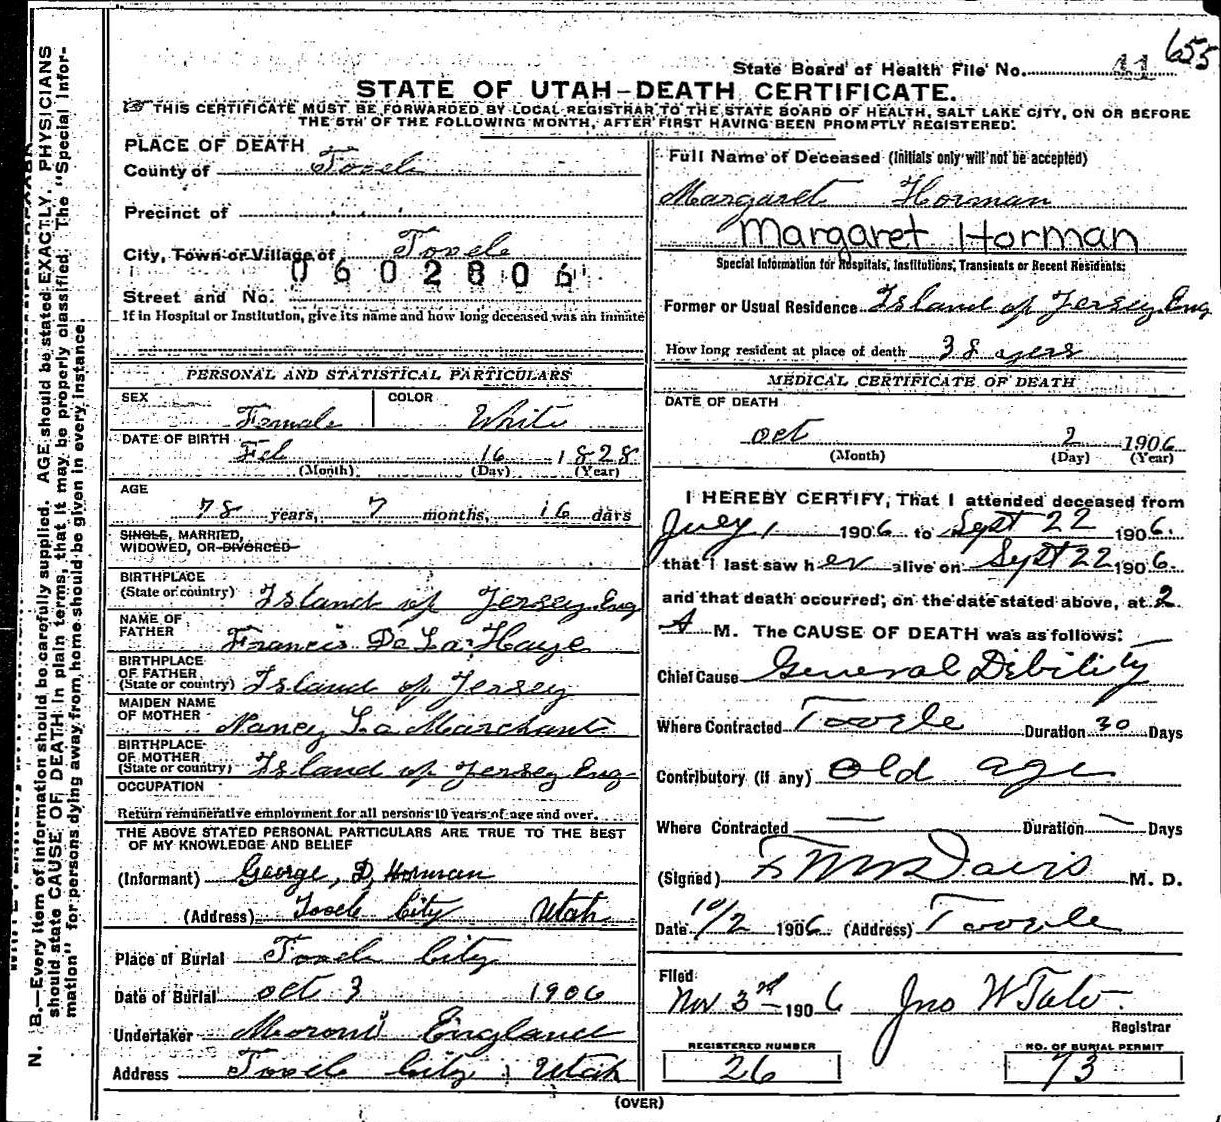 655
State Board of Health File No. 11
STATE OF UTAH-DEATH CERTIFICATE.
THIS CERTIFICATE MUST BE FORWARDED BY LOCAL REGISTRAR TO THE STATE BOARD OF HEALTH, SALT LAKE CITY, ON OR BEFORE
THE 5TH OF THE FOLLOWING MONTH, AFTER FIRST HAVING BEEN PROMPTLY REGISTERED.
PLACE OF DEATH
County of Tooele
Precinct of
City, Town or Village of Tooele
0602806
Street and No.
If in Hospital or Institution, give its name and how long deceased was an inmate
PERSONAL AND STATISTICAL PARTICULARS
SEX Female COLOR White
DATE OF BIRTH Feb 16 1828
(Month) (Day) (Year)
AGE
78 years, 7 months, 16 days
SINGLE, MARRIED,
WIDOWED, OR DIVORCED
BIRTHPLACE
(State or country) Island of Jersey Eng
NAME OF
FATHER Francis De La Haye
BIRTHPLACE
OF FATHER
(State or country) Island of Jersey
MAIDEN NAME
OF MOTHER Nancy La Marchant
BIRTHPLACE
OF MOTHER
(State or country) Island of Jersey Eng
OCCUPATION
Return remunerative employment for all persons 10 years of age and over.
THE ABOVE STATED PERSONAL PARTICULARS ARE TRUE TO THE BEST
OF MY KNOWLEDGE AND BELIEF
(Informant) George, D, Horman
(Address) Tooele City Utah
Place of Burial Tooele City
Date of Burial oct 3 1906
Undertaker Moroni England
Address Tooele City, Utah
Full Name of Deceased (Initials only will not be accepted)
Margaret Horman
Margaret Horman
Special Information for Hospitals, Institutions, Transients or Recent Residents:
Former or Usual Residence Island of Jersey Eng
How long resident at place of death 38 yers
MEDICAL CERTIFICATE OF DEATH
DATE OF DEATH
oct 2 1906
(Month) (Day) (Year)
I HEREBY CERTIFY, That I attended deceased from
July 1 1906 to Sept 22 1906.
that I last saw her alive on Sept 22 1906.
and that death occurred, on the date stated above, at 2
A M. The CAUSE OF DEATH was as follows:
Chief Cause General Debility
Where Contracted Tooele Duration 30 Days
Contributory (if any) old age
Where Contracted — Duration — Days
(Signed) Davis M. D.
Date 10/2 1906 (Address) Tooele
Filed
Nov 3rd 1906 Jno W Tate
Registrar
REGISTERED NUMBER
26
NO. OF BURIAL PERMIT
73
(OVER)
N. B.—Every item of information should be carefully supplied. AGE should be stated EXACTLY. PHYSICIANS
should state CAUSE OF DEATH in plain terms, that it may be properly classified. The "Special Infor-
mation" for persons dying away from home should be given in every instance.